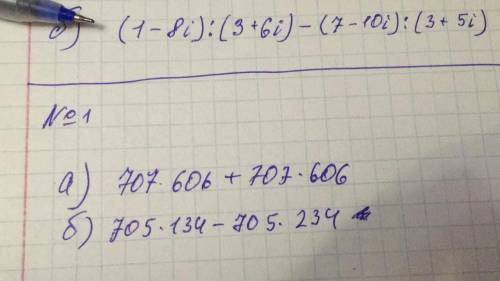 б) (1-8i):(3+6i)-(7-10i):(3+5i)
№1
а) 707·606+707·606
б) 705·134-705·234